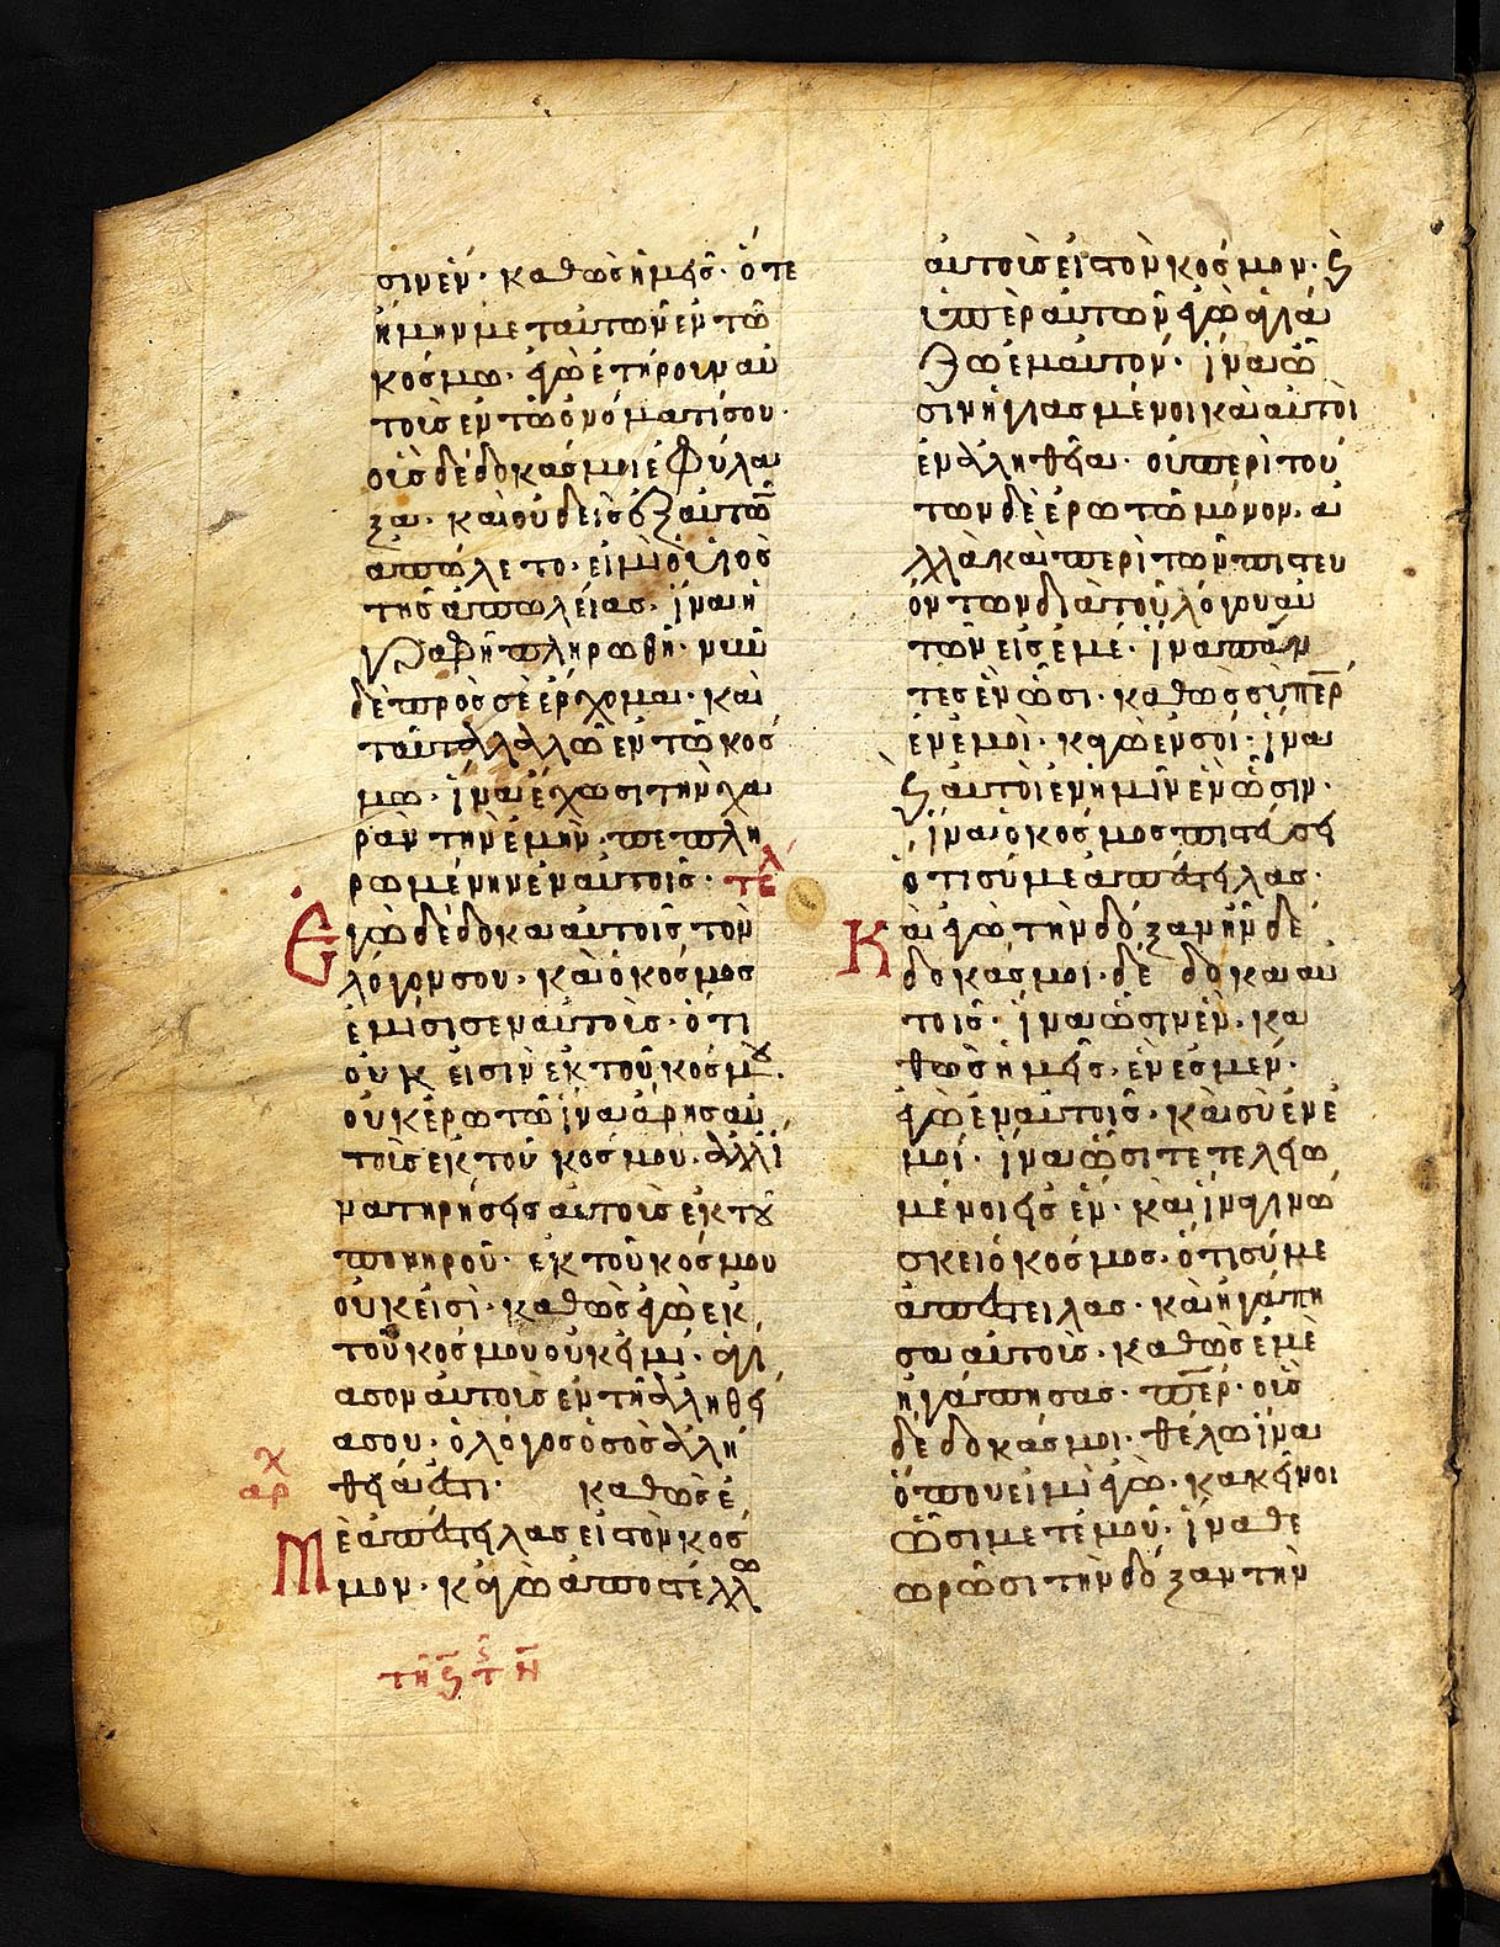 σιν ἕν· καθὼς ἡμεῖς· ὅτε
ἤμην μετ αὐτῶν ἐν τῶ
κόσμω· ἐγὼ ἐτήρουν αὐ
τοὺς ἐν τῶ ὀνόματί σου·
οὓς δέδοκάς μοι ἐφύλα
ξα· καὶ οὐδεὶς ἐξ αὐτῶ̄
ἀπώλετο· εἰ μὴ ὁ υἱὸς
τῆς ἀπωλείας· ἵνα ἡ
γραφὴ πληρωθῆ· νῦν
δὲ πρὸς σὲ ἔρχομαι· καὶ
ταῦτα λαλῶ ἐν τῶ κόσ
μω· ἵνα ἔχωσι τὴν χα
ρὰν τὴν ἐμὴν· πεπλη
ρωμένην ἐν αὐτοῖς· τελ
Ἐγὼ δέδοκα αὐτοῖς τὸν
λόγον σου· καὶ ὁ κόσμος
ἐμίσισεν αὐτοὺς· ὅτι
οὐκ εἰσὶν ἐκ τοῦ κόσμȣ·
οὐκ ἐρωτῶ ἵνα ἄρης αὐ
τοὺς ἐκ τοῦ κόσμου· ἀλλ ἵ
να τηρήσεις αὐτοὺς ἐκ τȣ͂
πονηροῦ· ἐκ τοῦ κόσμου
οὐκ εἰσὶ· καθὼς ἐγὼ ἐκ
τοῦ κόσμου οὐκ εἰμι· ἁγί
ασον αὐτοὺς ἐν τῆ ἀληθεί
α σου· ὁ λόγος ὁ σὸς ἀλή
αρχ θειά ἐστι· καθὼς ἐ
ἐ ἀπέστειλας εἰς τὸν κόσ
Μ μον· κἀγὼ ἀποστέλλω
τῆ ϛ τ ς Ν
αὐτοὺς εἰς τὸν κόσμον· ϛ
ὑπὲρ αὐτῶν ἐγὼ ἁγιά
ζω ἐμαυτόν· ἵνα ὦ
σιν ἡγιασμένοι καὶ αὐτοὶ
ἐν ἀληθεία· οὐ περὶ τού
των δὲ ἐρωτῶ μόνον· ἀ
λλὰ καὶ περὶ τῶν πιστευ
όντων διὰ τοῦ λόγου αὐ
τῶν εἰς ἐμέ· ἵνα πάν
τες ἓν ὦσι· καθὼς σὺ π̅ε̅ρ̅
ἐν ἐμοὶ· κἀγὼ ἐν σοί· ἵνα
ϛ αὐτοὶ ἐν ἡμῖν ἓν ὦσιν·
ἵνα ὁ κόσμος πιστεύσει
ὅτι σύ με ἀπέστειλας·
Καὶ ἐγὼ τὴν δόξαν ἣν δέ
δοκάς μοι· δέδοκα αὐ
τοῖς· ἵνα ὦσιν ἓν· κα
θὼς ἡμεῖς· ἕν ἐσμεν·
ἐγὼ ἐν αὐτοῖς· καὶ σὺ ἐν ἐ
μοί· ἵνα ὦσι τετελειω
μένοι εἰς ἕν· καὶ ἵνα γινώ
σκει ὁ κόσμος· ὅτι σύ με
ἀπέστειλας· καὶ ἠγάπη
σα αὐτοὺς· καθὼς ἐμὲ
ἠγάπησας· π̅ε̅ρ̅· οὓς
δέδοκάς μοι· θέλω ἵνα
ὅπου εἰμὶ ἐγὼ· κἀκεῖνοι
ὦσι μετ ἐμοῦ· ἵνα θε
ωρῶσι τὴν δόξαν τὴν